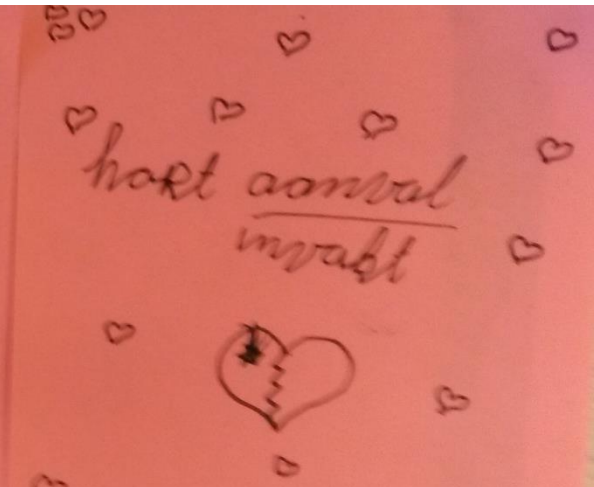 hart aanval
invakt